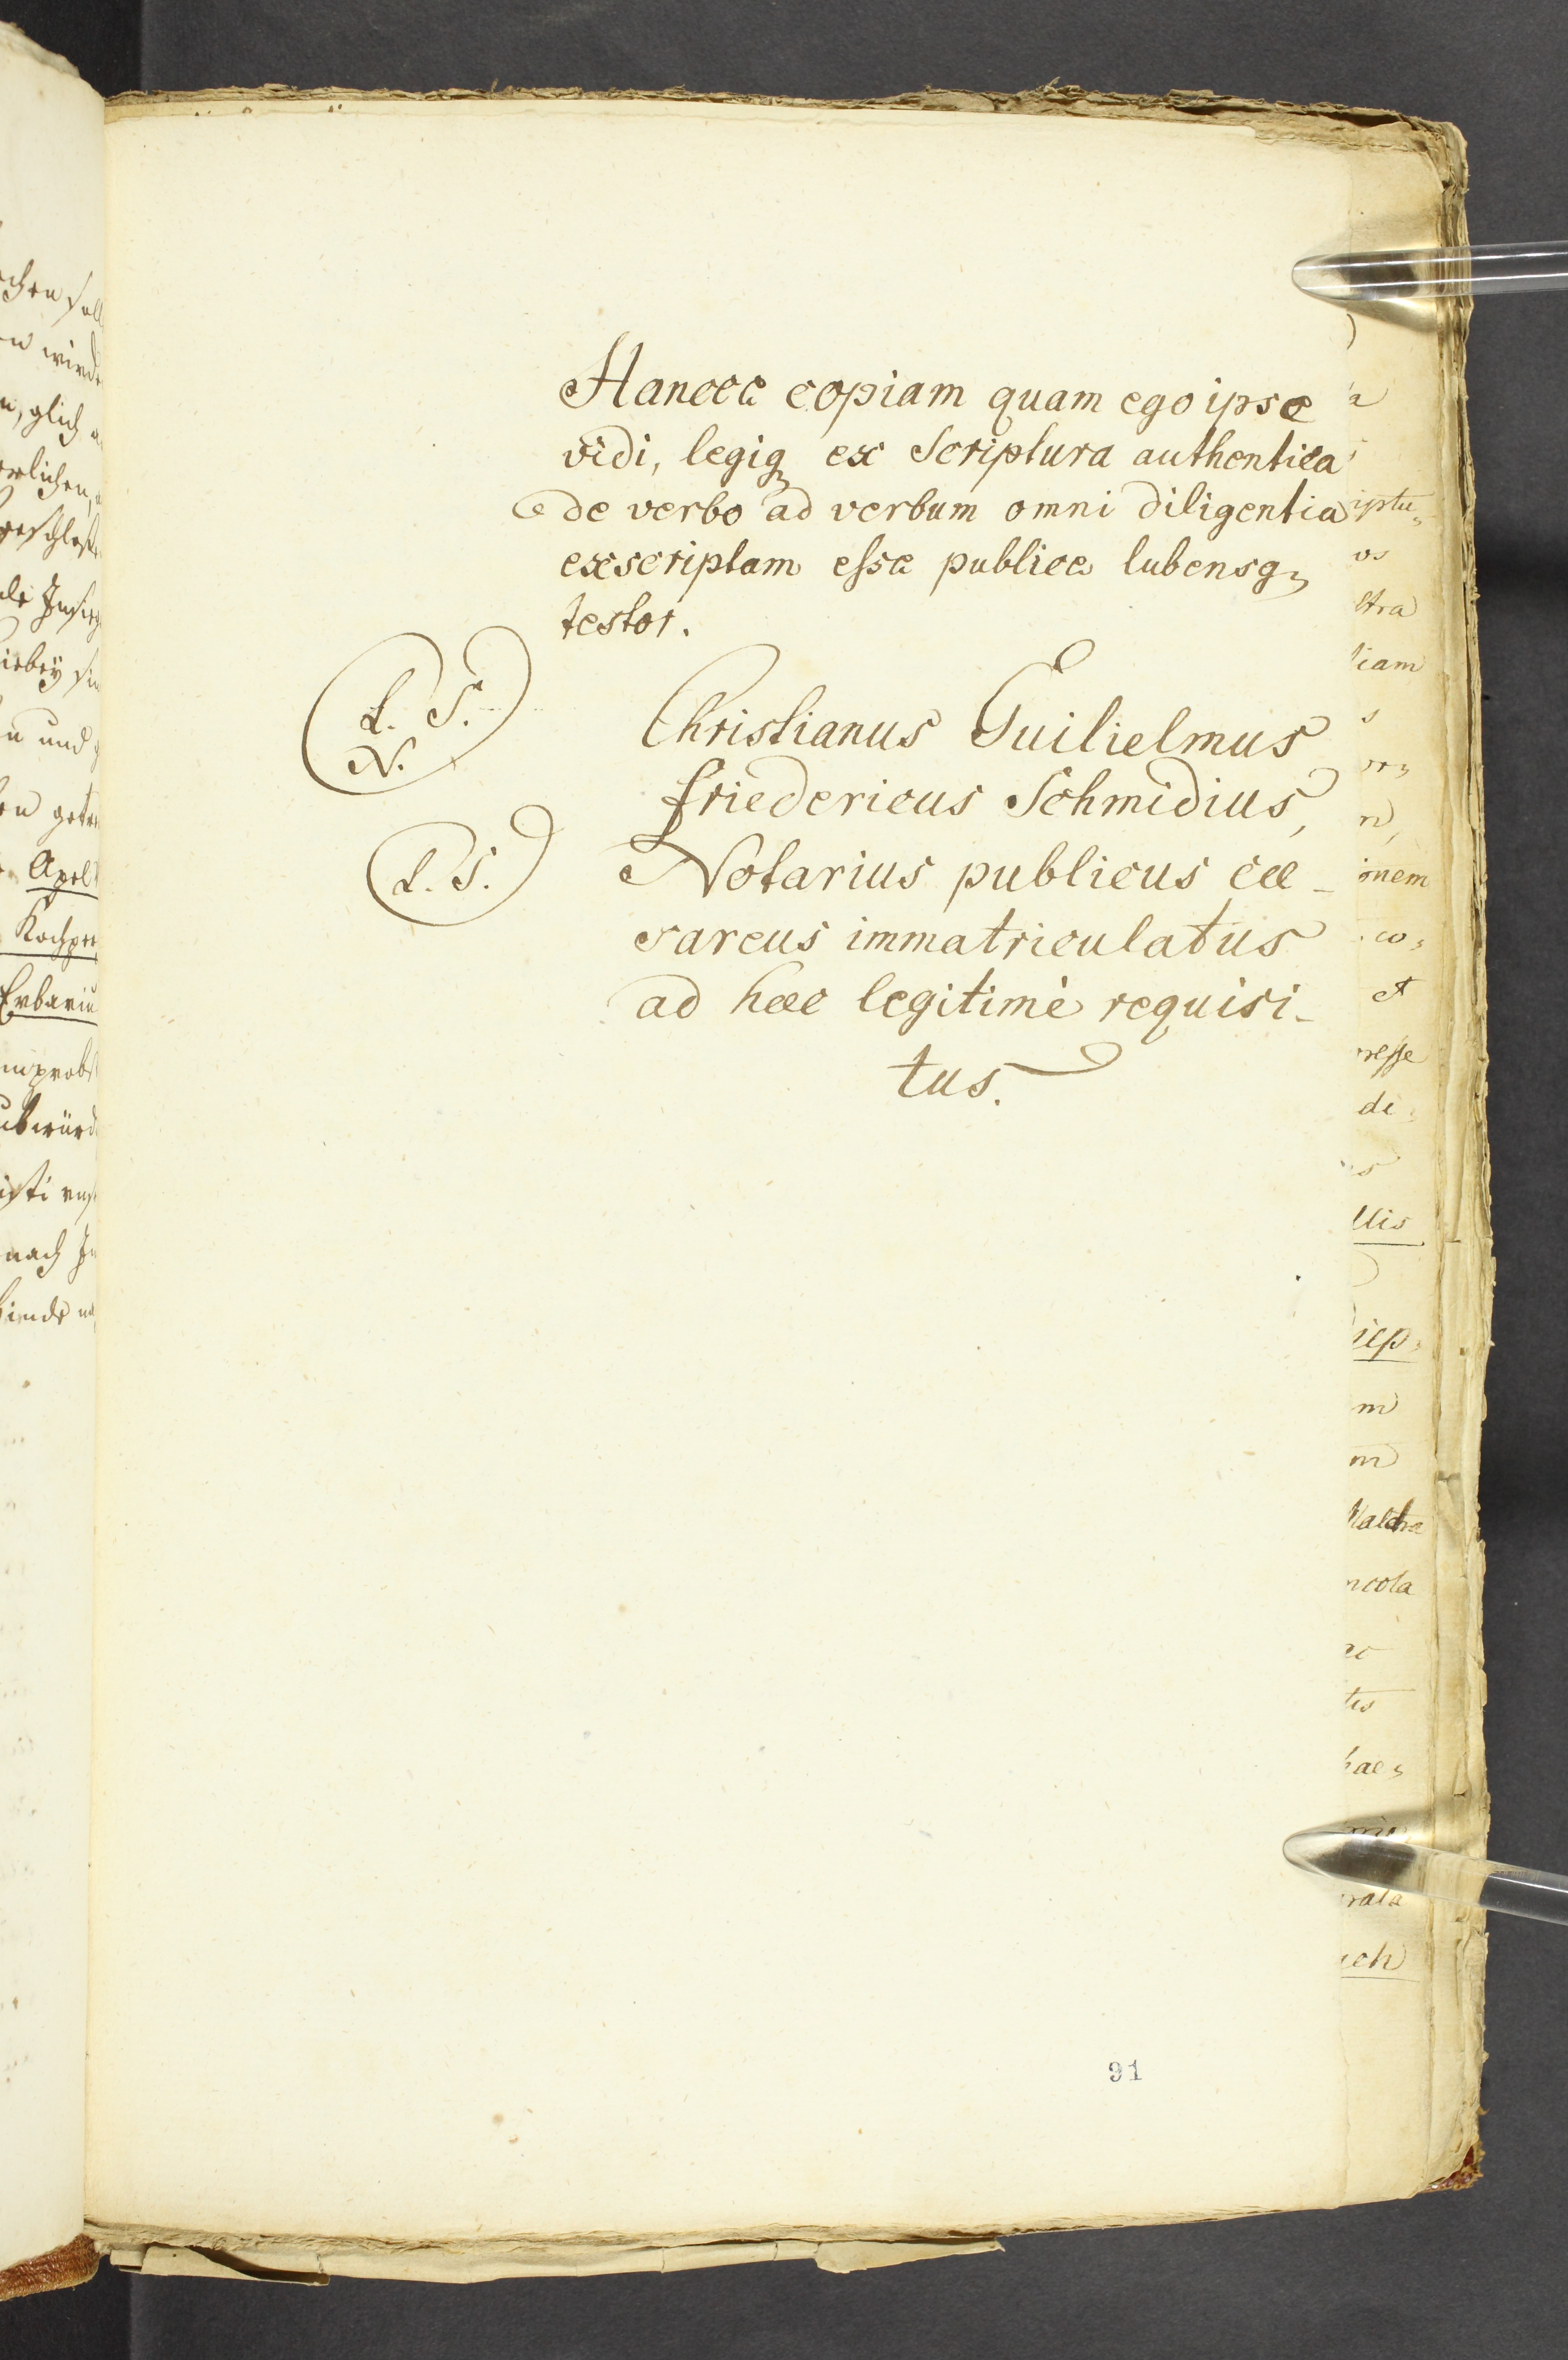 Hancce copiam quam ego ipse
vidi, legiq; ex Scriptura authentica
de verbo ad verbum omni diligentia
exscriptam eſse publice lubensq;
testor.
L. S.
N.
Christianus Guilielmus
Friedericus Schmidius,
L. S.
Notarius publicus cae-
sareus immatriculatus
ad haec legitimè requisi-
tus.
91